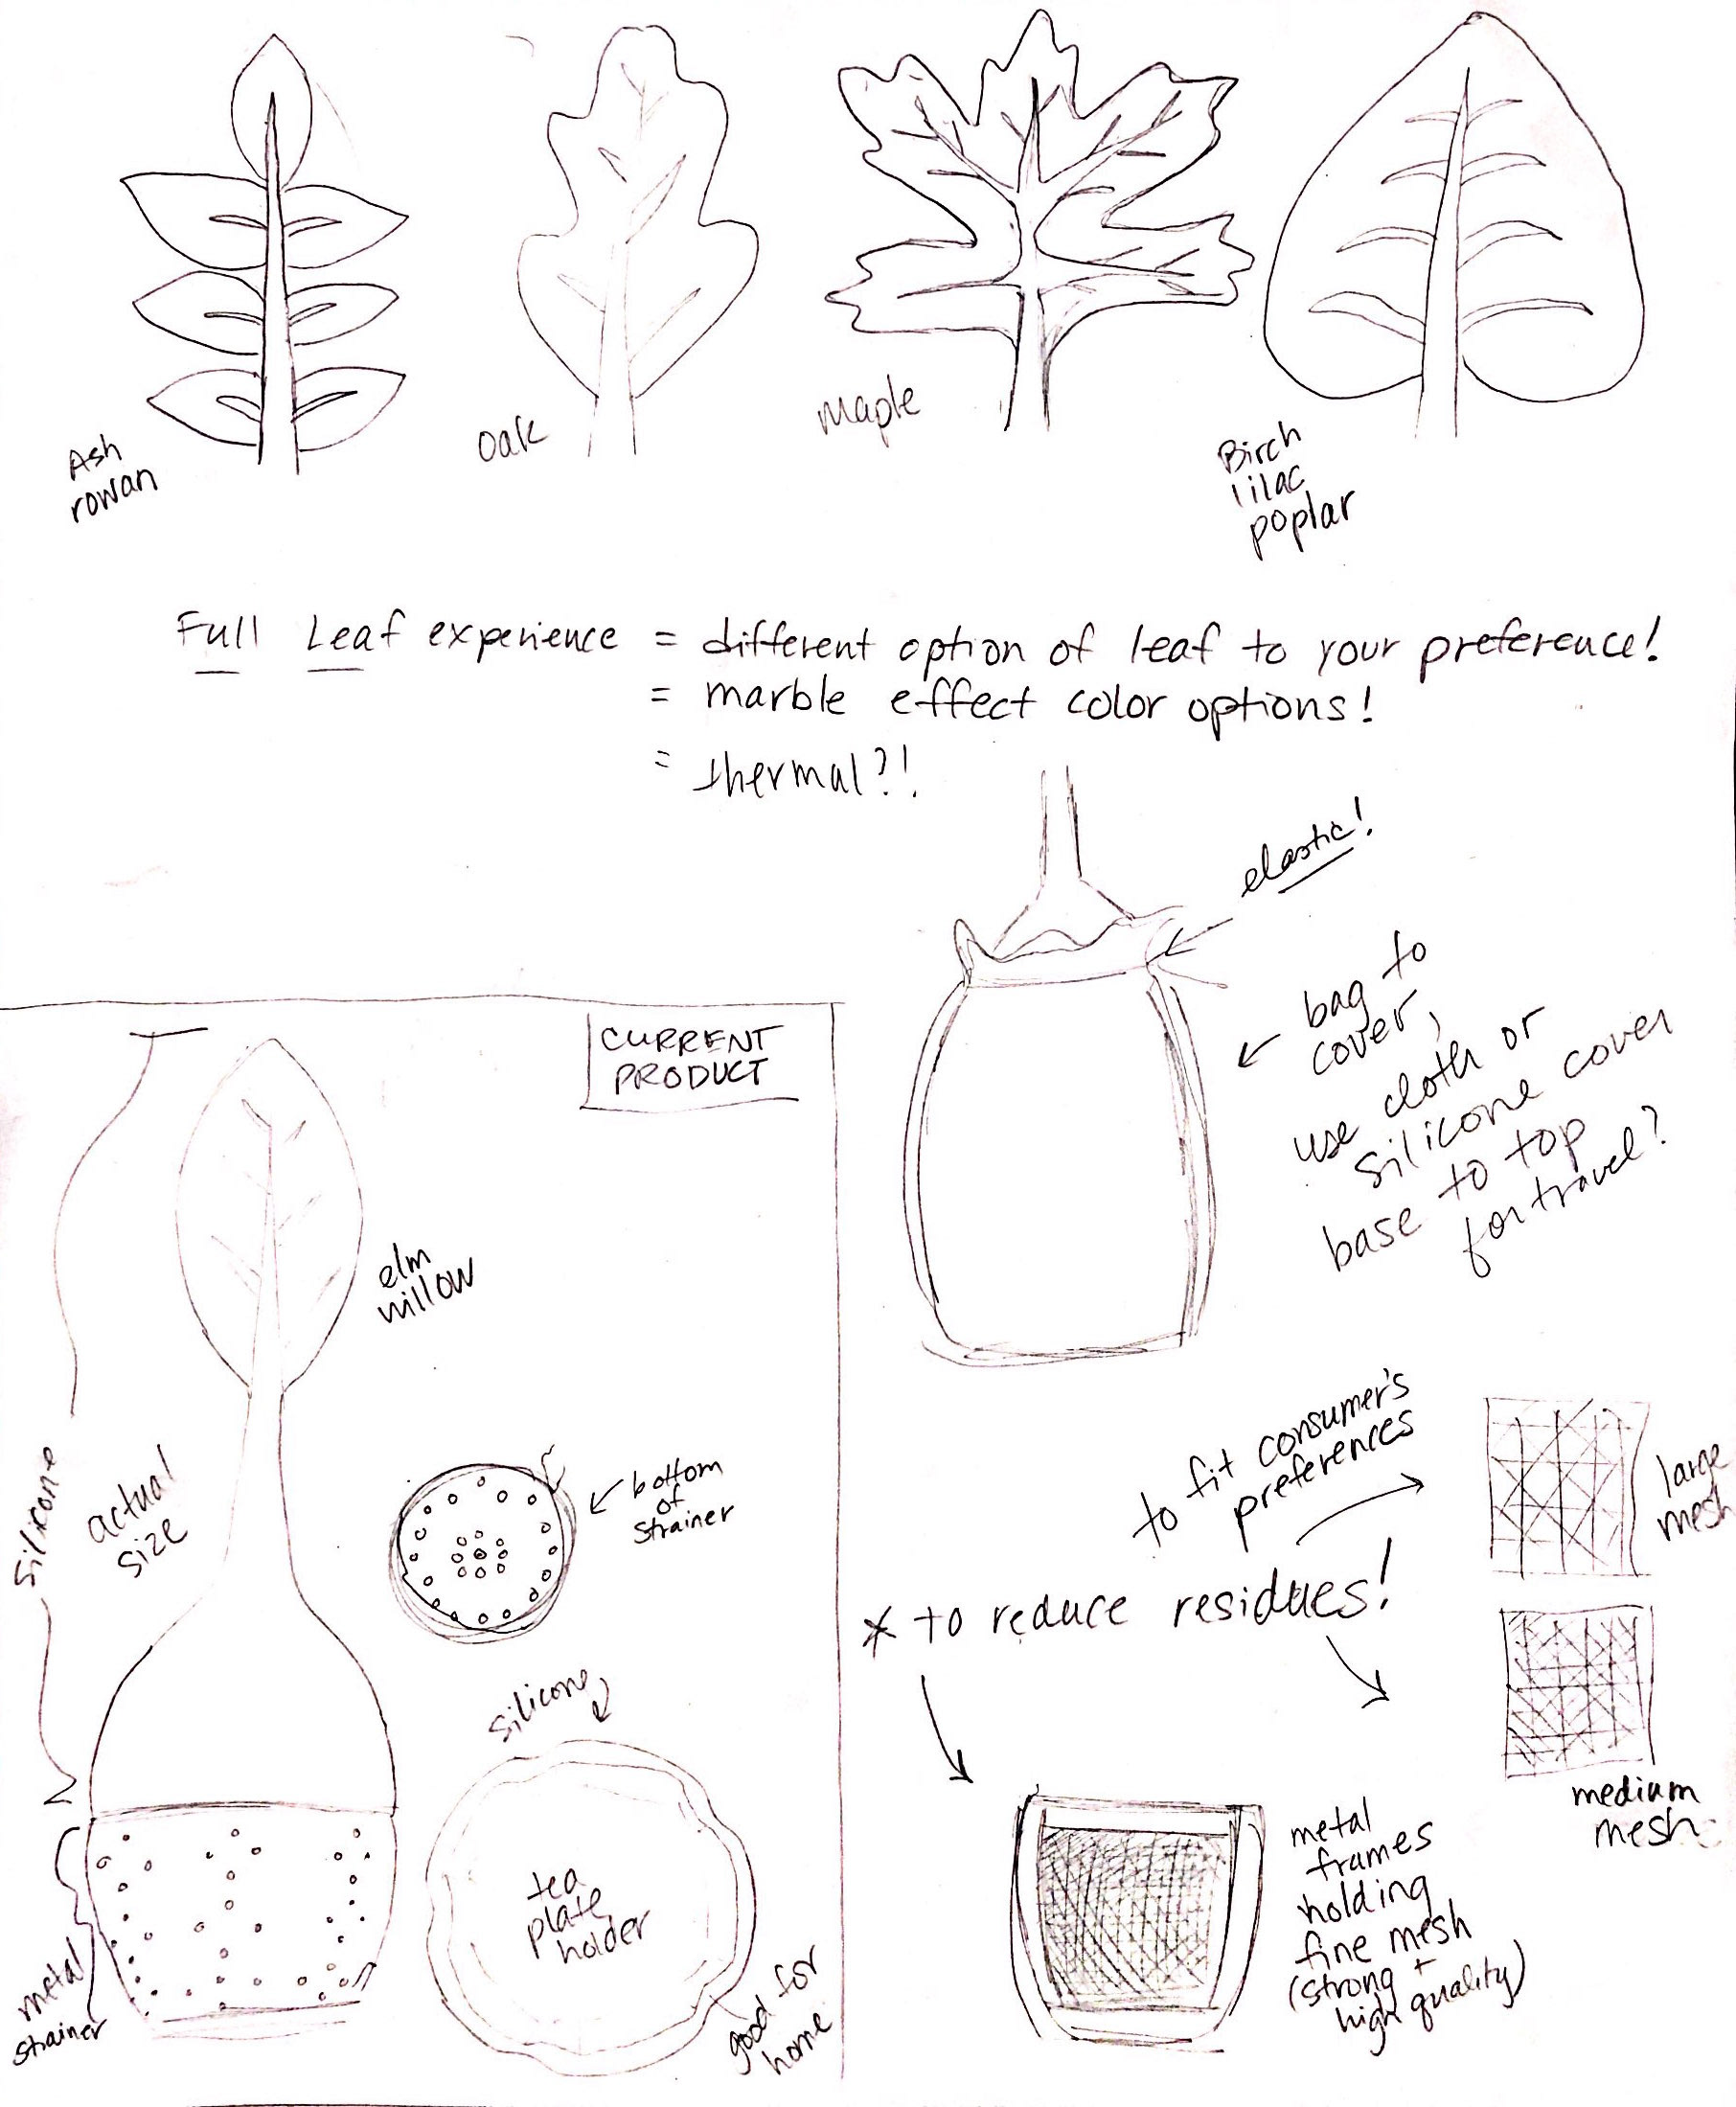 Ash
rowan
Oak
Maple
Birch
lilac
poplar
Full Leaf experience = different option of leaf to your preference!
= marble effect color options!
= thermal?!
elastic!
bag to
cover,
use cloth or
silicone cover
base to top
for travel?
CURRENT
PRODUCT
elm
willow
silicone
actual
size
bottom
of
strainer
silicone
tea
plate
holder
good for
home
metal
strainer
to fit consumer's
preferences
* to reduce residues!
large
mesh
medium
mesh
metal
frames
holding
fine mesh
(strong +
high quality)